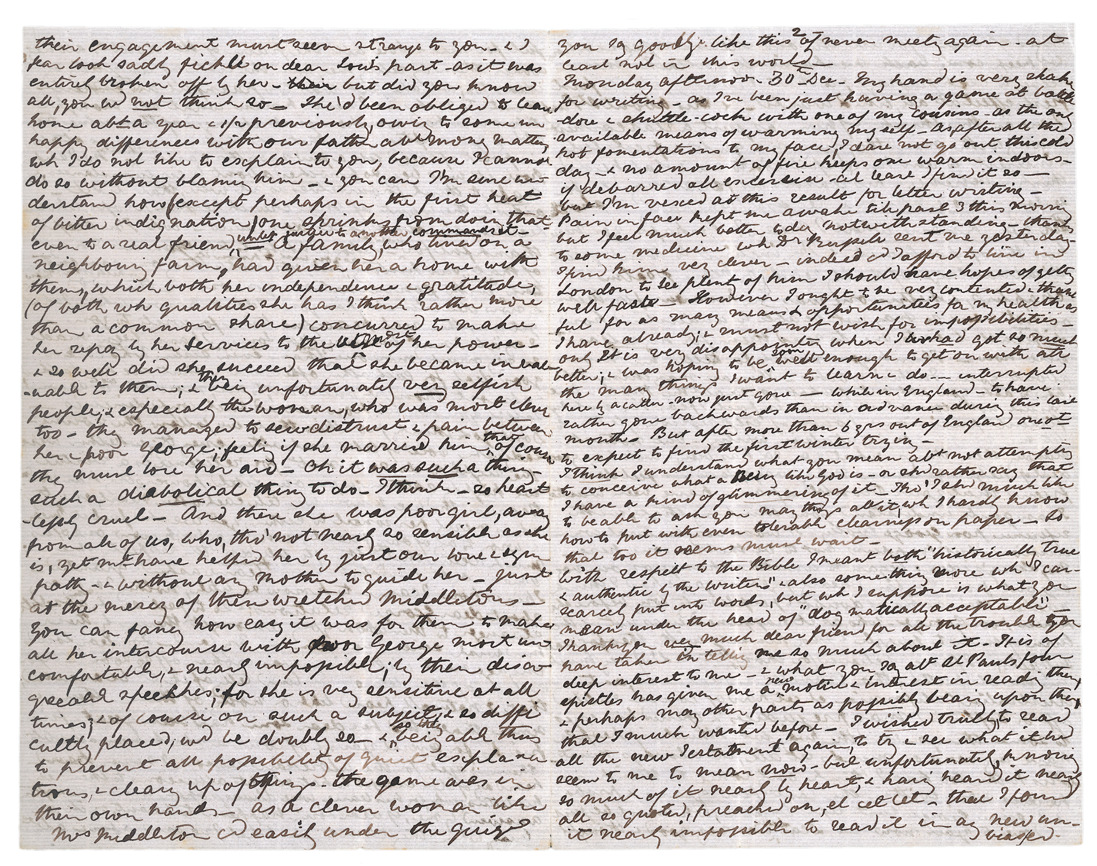 their engagement must seem strange to you - & I
fear look sadly fickle on dear Lou's part - as it was
entirely broken off by her - but did you know
all, you wd not think so - She'd been obliged to leave
home abt a year & 1/2 previously, owing to some un
happy differences with our father abt money matters
wh I do not like to explain to you, because I cannot
do so without blaming him - & you can I'm sure un-
derstand how (except perhaps in the first heat
of bitter indignation) one shrinks from doing that
even to a real friend, unless under another command st -
A family, who lived on a
neighbouring farm, had given her a home with
them, which both her independence & gratitude,
(of both wh qualities she has I think rather more
than a common share) concurred to make
her repay by her services to the utmost of her power -
& so well did she succeed that she became inval
-uable to them; & they being unfortunately very selfish
people, & especially the woman, who was most clever
too - they managed to sew distrust & pain between
her & poor George, feeling if she married him, that of course
they must lose her aid - Oh it was such a thing -
such a diabolical thing to do - I think - so heart
-lessly cruel - And there she was poor girl, away
from all of us, who, tho' not nearly so sensible as she
is, yet mt have helped her by just our love & sym
pathy - & without any Mother to guide her - just
at the mercy of these wretched Middletons -
You can fancy how easy it was for them to make
all her intercourse with poor George most un
comfortable, & nearly impossible; by their disa
greeable speeches; for she is very sensitive at all
times; & of course on such a subject, & so diffi
cultly placed, wd be doubly so - & so they being able thus
to prevent all possibility of quiet explana
tions, & clearing up of things - the game was in
their own hands - as a clever woman like
Mrs Middleton cd easily under the guise
you say goodbye like this & never meet again - at
least not in this world -
Monday afternoon. 30th Dec - My hand is very shaky
for writing - as I've been just having a game at battle
-dore & shuttle-cock with one of my cousins - as the only
available means of warming myself - as after all the
hot fomentations to my face, I dare not go out this cold
day - & no amount of fire keeps one warm indoors -
if debarred all exercise - at least I find it so -
but I'm vexed at this result for letter writing -
Pain in face kept me awake till past 3 this morning
but I feel much better today notwithstanding - thanks
to some medicine wh Dr Russell sent me yesterday -
I find him very clever - indeed cd I afford to live in
London to see plenty of him I should have hopes of getting
well faster - However I ought to be very contented & thank
ful for as many means & opportunities for my health as
I have already; & must not wish for impossibilities -
only It is very disappointing when I had got so much
better; & was hoping to be soon well enough to get on with all
the many things I want to learn & do - interrupted
here by a caller - now just gone - while in England - to have
rather gone backwards than in advance during this last
month - But after more than 6 yrs out of England one ot
to expect to find the first winter trying -
I think I understand what you mean abt not attempting
to conceive what a Being like God is - or shd rather say that
I have a kind of glimmering of it - Tho' I shd much like
to be able to ask you many things abt it wh I hardly know
how to put with even tolerable clearness on paper - So
that too it seems must wait -
With respect to the Bible I meant both "historically true
& authentic by the writers" & also something more wh I can
scarcely put into words, but wh I suppose is what you
mean under the head of "dogmatically acceptable".
Thank you very much dear friend for all the trouble you
have taken in telling me so much about it - It is of
deep interest to me - & what you say abt St Pauls four
epistles has given me a new motive & interest in reading them,
& perhaps many other parts as possibly bearing upon them,
that I much wanted before - I wished truly to read
all the new Testament again, to try & see what it wd
seem to me to mean now - but unfortunately, knowing
so much of it nearly by heart, & having heard it nearly
all so quoted, preached on, et cet cet - that I found
it nearly impossible to read it in any new un-
biassed